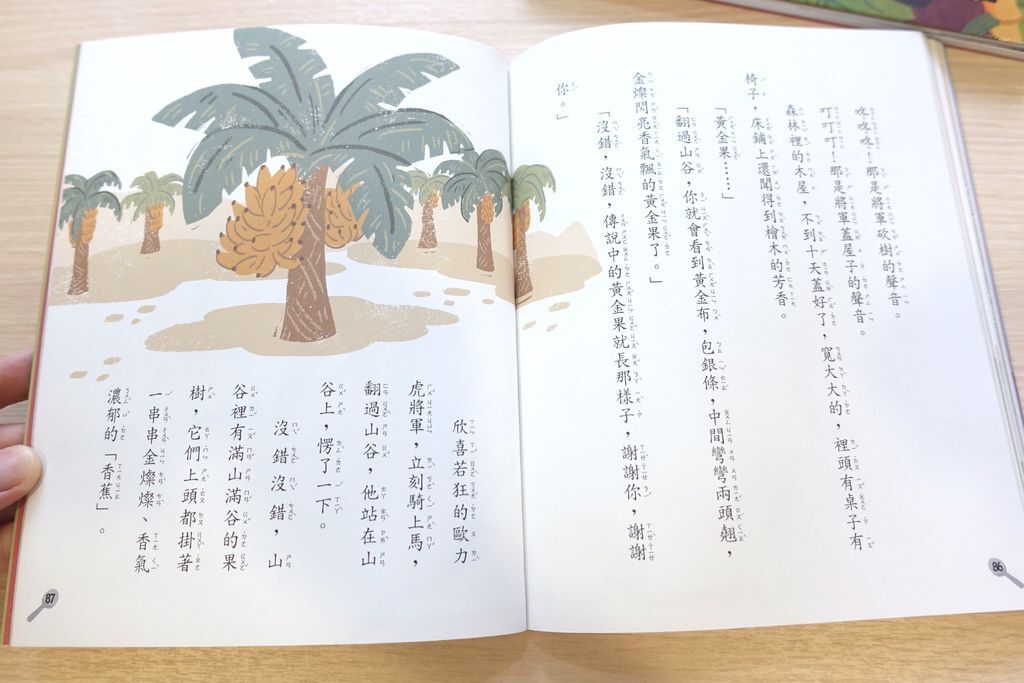 咚咚咚!那是將軍砍樹的聲音。
叮叮叮!那是將軍蓋屋子的聲音。
森林裡的木屋,不到十天蓋好了,寬大大的,裡頭有桌子有
椅子,床鋪上還聞得到檜木的芳香。
「黃金果……」
「翻過山谷,你就會看到黃金布,包銀條,中間彎彎兩頭翹,
金燦閃亮香氣飄的黃金果了。」
「沒錯,沒錯,傳說中的黃金果就長那樣子,謝謝你,謝謝
你。」
86
欣喜若狂的歐力
虎將軍,立刻騎上馬,
翻過山谷,他站在山
谷上,愣了一下。
沒錯沒錯,山
谷裡有滿山滿谷的果
樹,它們上頭都掛著
一串串金燦燦、香氣
濃郁的「香蕉」。
87